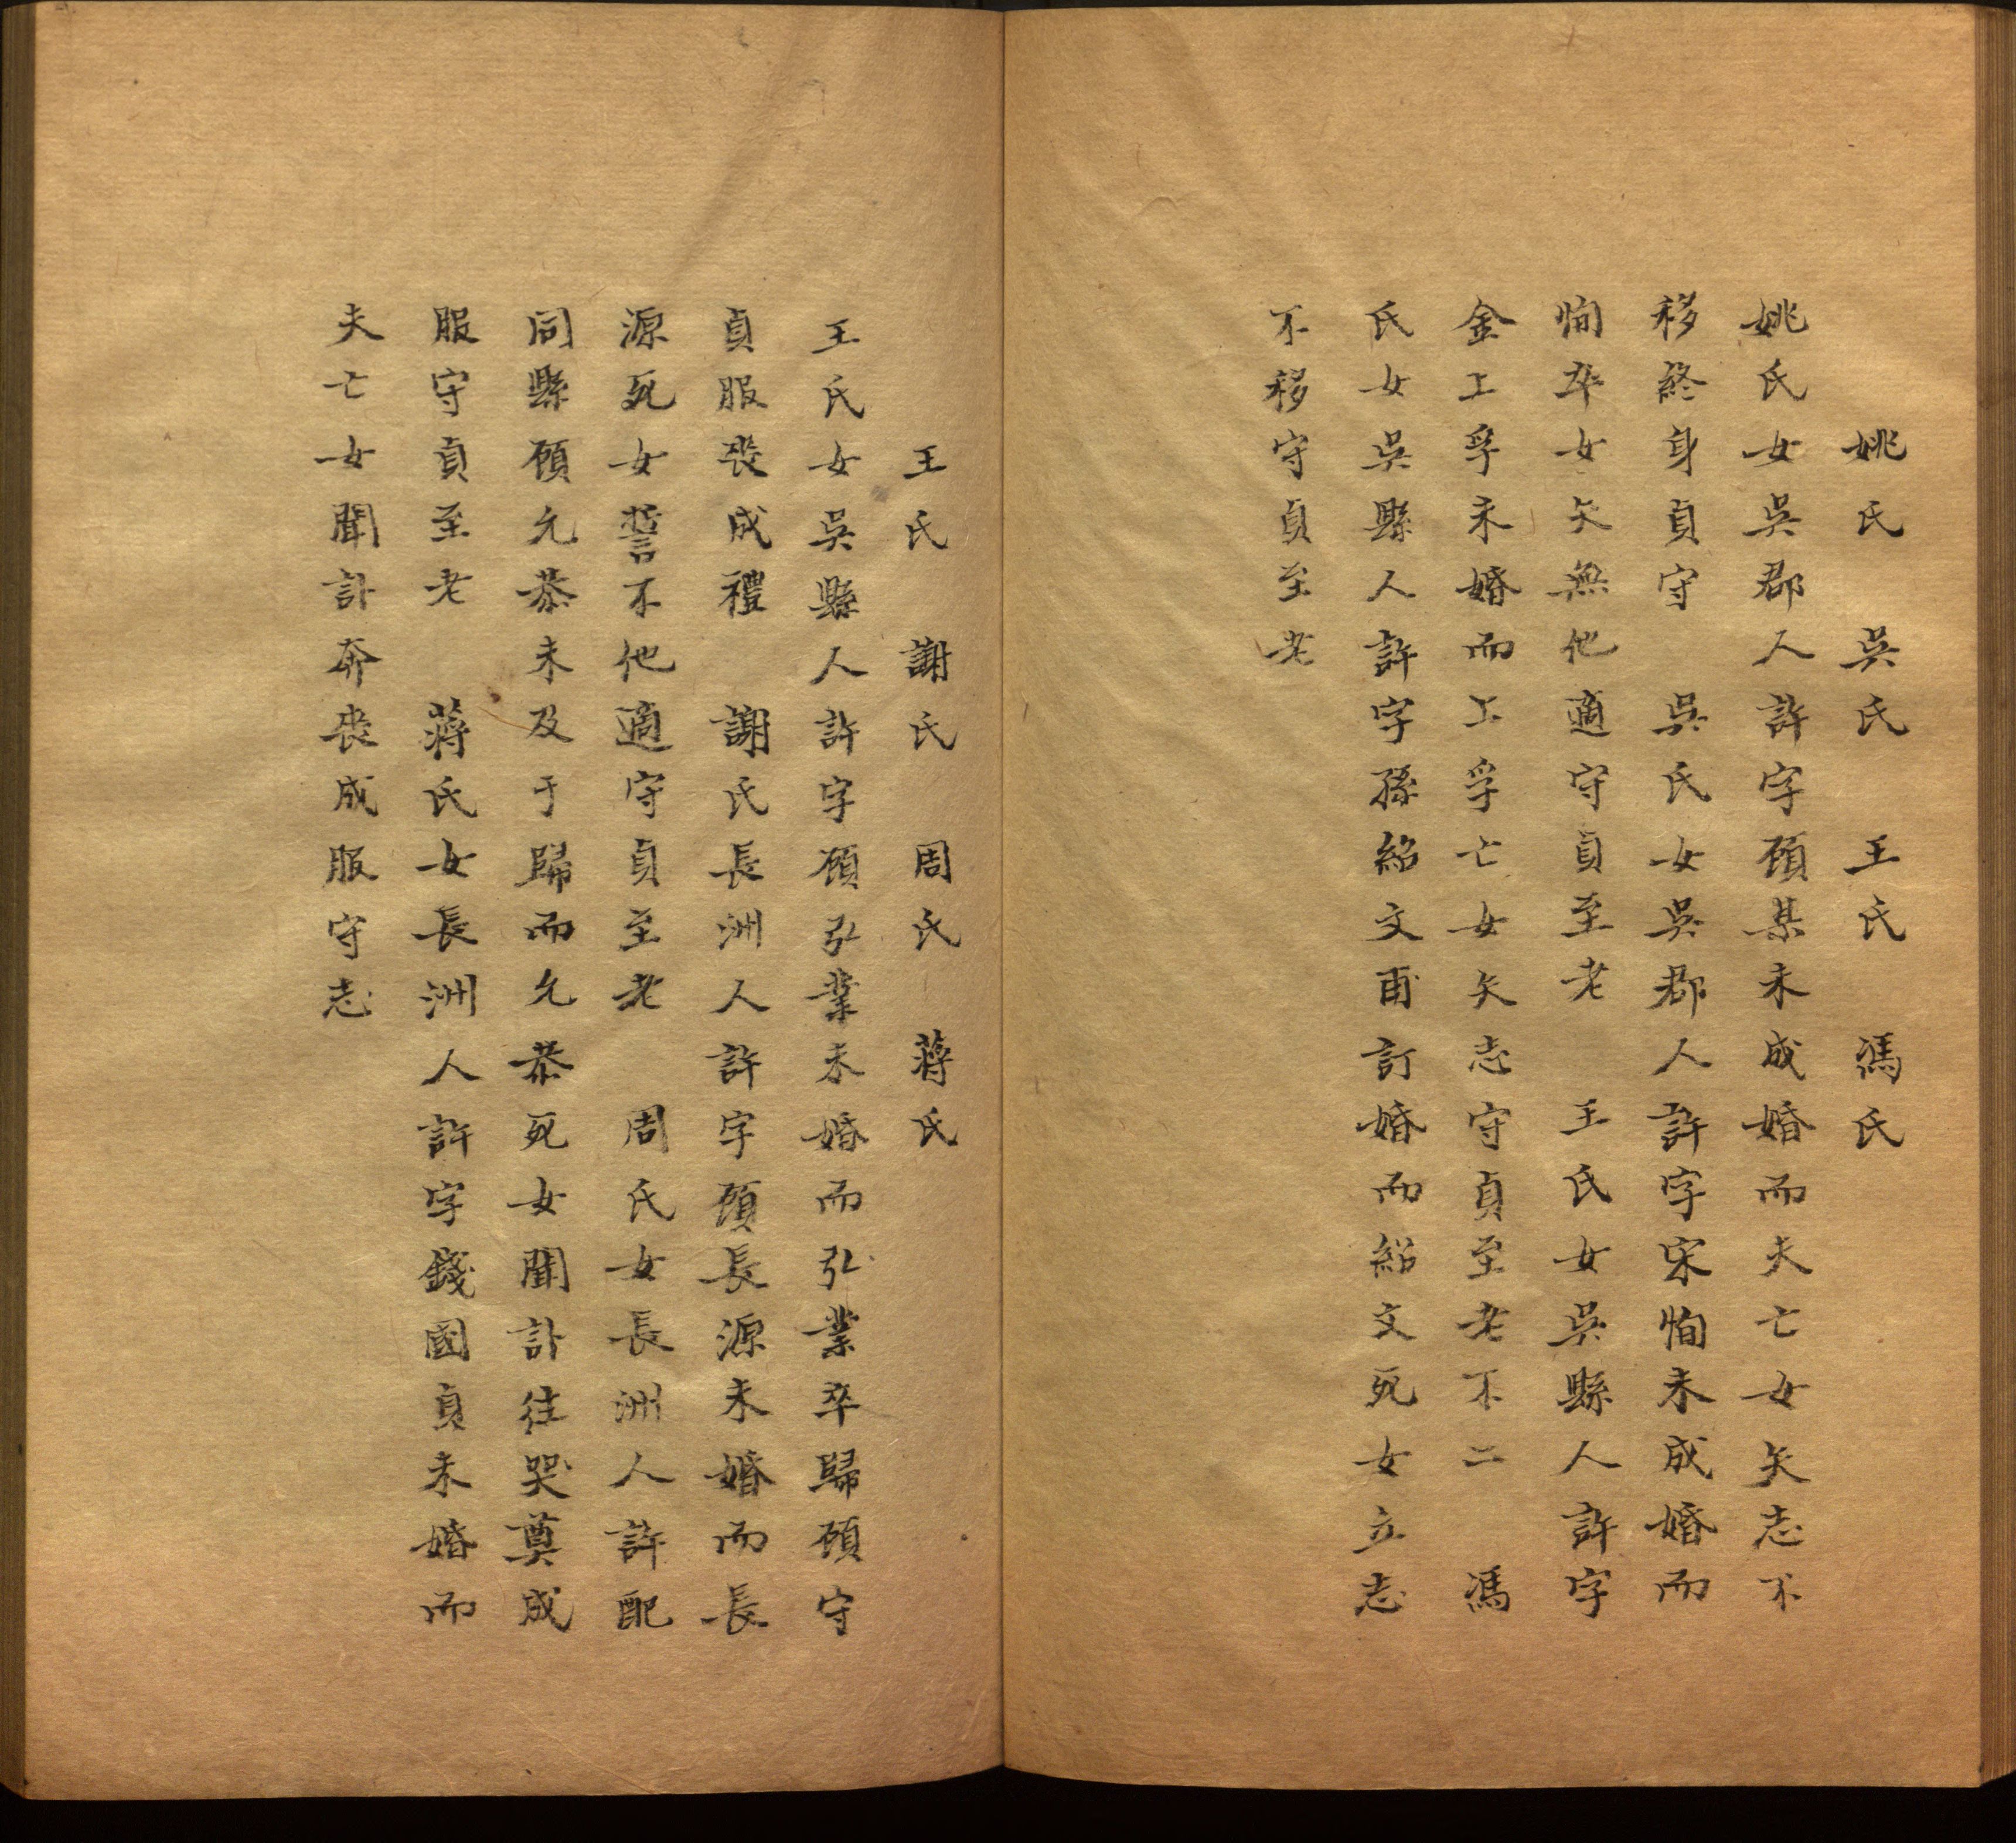 姚氏　吳氏　王氏　馮氏
姚氏女吳郡人許字顧某未成婚而夫亡女矢志不
移終身貞守　吳氏女吳郡人許字宋恂未成婚而
恂卒女矢無他適守貞至老　王氏女吳縣人許字
金上孚未婚而上孚亡女矢志守貞至老不二　馮
氏女吳縣人許字孫紹文甫訂婚而紹文死女立志
不移守貞至老
王氏　謝氏　周氏　蔣氏
王氏女吳縣人許字顧弘業未婚而弘業卒歸顧守
貞服喪成禮　謝氏長洲人許字顧長源未婚而長
源死女誓不他適守貞至老　周氏女長洲人許配
同縣顧允恭未及于歸而允恭死女聞訃往哭奠成
服守貞至老　蔣氏女長洲人許字錢國貞未婚而
夫亡女聞訃奔喪成服守志